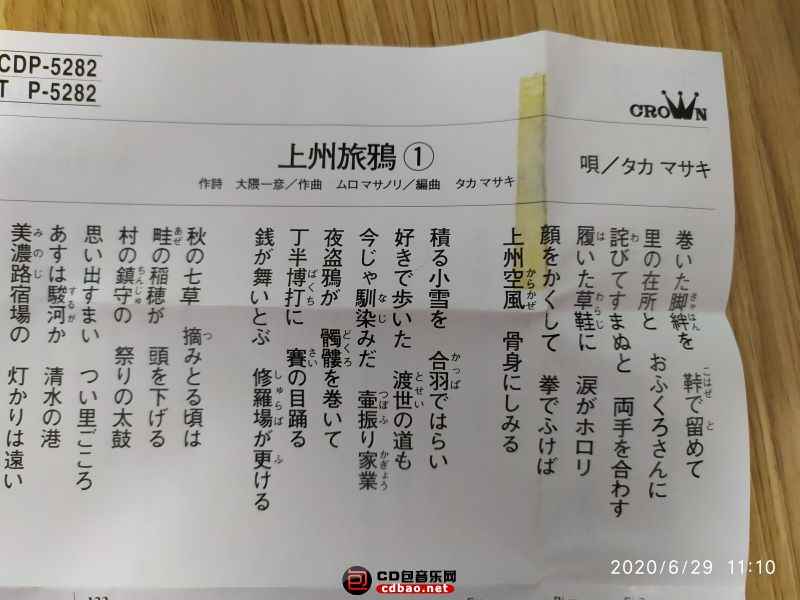 CDP-5282
T P-5282
CROWN
上州旅鴉①
唄／タカ マサキ
作詩 大隈一彦／作曲 ムロ マサノリ／編曲 タカ マサキ
巻いた脚絆を 鞐で留めて
里の在所と おふくろさんに
詫びてすまぬと 両手を合わす
履いた草鞋に 涙がホロリ
顔をかくして 拳でふけば
上州空風 骨身にしみる
積る小雪を 合羽ではらい
好きで歩いた 渡世の道も
今じゃ馴染みだ 壷振り家業
夜盗鴉が 髑髏を巻いて
丁半博打に 賽の目踊る
銭が舞いとぶ 修羅場が更ける
秋の七草 摘みとる頃は
畦の稲穂が 頭を下げる
村の鎮守の 祭りの太鼓
思い出すまい つい里ごころ
あすは駿河か 清水の港
美濃路宿場の 灯かりは遠い
2020/6/29 11:10
CD包音乐网
cdbao.net